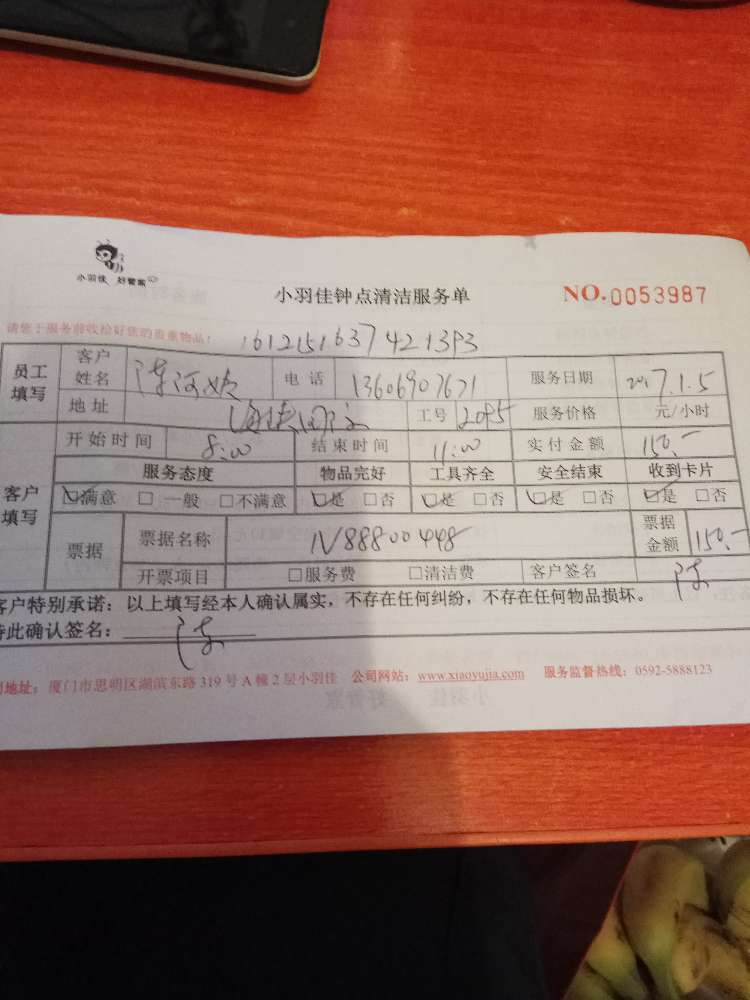 小羽佳 好管家
小羽佳钟点清洁服务单 NO.0053987
请您于服务前收拾好您的贵重物品:
员工填写 客户姓名 电话 13606907671 服务日期 2017.1.5
地址 工号 2095 服务价格 元/小时
客户填写 开始时间 8:00 结束时间 11:00 实付金额 150.-
服务态度 物品完好 工具齐全 安全结束 收到卡片
☑满意 □一般 □不满意 ☑是 □否 ☑是 □否 ☑是 □否 ☑是 □否
票据 票据名称 1V88800448 票据金额 150.-
开票项目 □服务费 □清洁费 客户签名 陈
客户特别承诺:以上填写经本人确认属实,不存在任何纠纷,不存在任何物品损坏。
特此确认签名: 陈
地址:厦门市思明区湖滨东路319号A幢2层小羽佳 公司网站:www.xiaoyujia.com 服务监督热线:0592-5888123